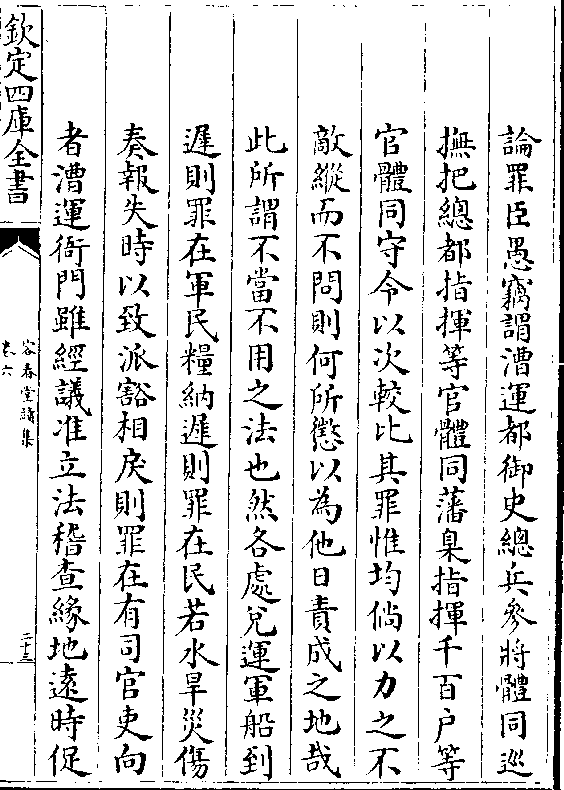 論罪臣愚竊謂漕運都御史總兵參將體同巡
撫把總都指揮等官體同藩臬指揮千百户等
官體同守令以次較比其罪惟均倘以力之不
敵縱而不問則何所懲以為他日責成之地哉
此所謂不當不用之法也然各處兑運軍船到
遲則罪在軍民糧納遲則罪在民若水旱災傷
奏報失時以致派豁相戾則罪在有司官吏向
者漕運衙門雖經議准立法稽查緣地遠時促
欽定四庫全書
容春堂續集
卷六
二十三